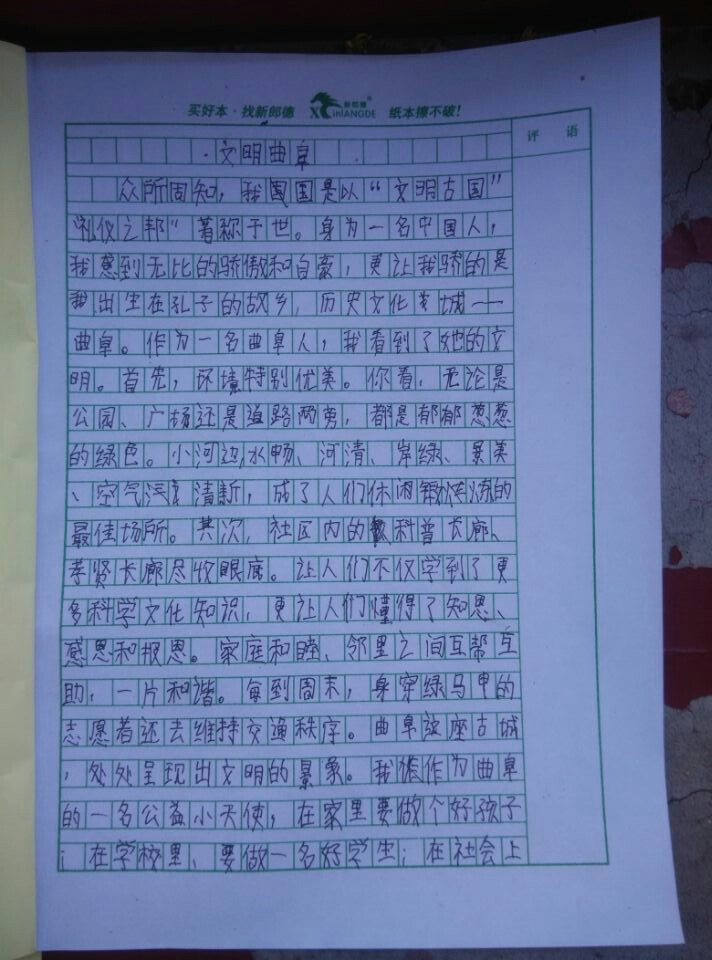 买好本·找新郎德 新郎德 XinLANGDE 纸本擦不破!
评 语
·文明曲阜·
众所周知，我国是以“文明古国”
“礼仪之邦”著称于世。身为一名中国人，
我感到无比的骄傲和自豪，更让我骄的是
我出生在孔子的故乡，历史文化名城——
曲阜。作为一名曲阜人，我看到了她的文
明。首先，环境特别优美。你看，无论是
公园、广场还是道路两旁，都是郁郁葱葱
的绿色。小河边，水畅、河清、岸绿、景美
、空气清新，成了人们休闲锻炼的
最佳场所。其次，社区内的科普长廊、
孝贤长廊尽收眼底。让人们不仅学到了更
多科学文化知识，更让人们懂得了知恩、
感恩和报恩。家庭和睦、邻里之间互帮互
助，一片和谐。每到周末，身穿绿马甲的
志愿者还去维持交通秩序。曲阜这座古城
，处处呈现出文明的景象。我作为曲阜
的一名公益小天使，在家里要做个好孩子
；在学校里、要做一名好学生；在社会上